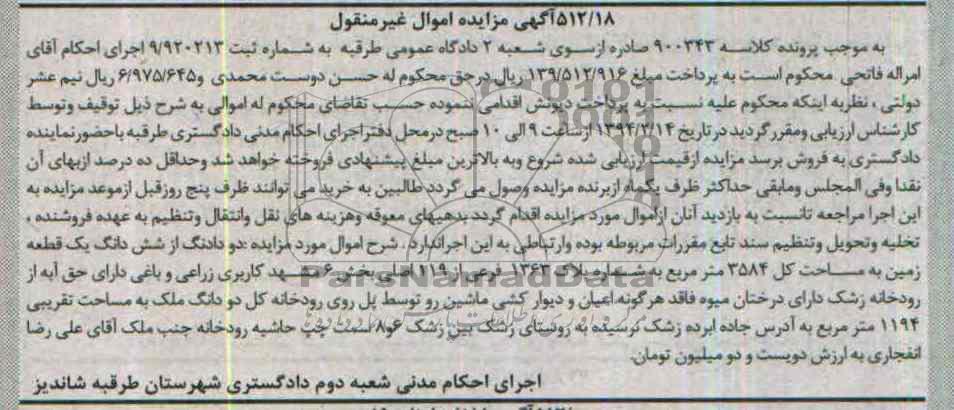 ۵۱۲/۱۸آگهی مزایده اموال غیرمنقول
به موجب پرونده کلاسه ۹۰۰۳۴۳ صادره ازسوی شعبه ۲ دادگاه عمومی طرقبه به شماره ثبت ۹/۹۲۰۲۱۳ اجرای احکام آقای
امراله فاتحی محکوم است به پرداخت مبلغ ۱۳۹/۵۱۲/۹۱۶ ریال درحق محکوم له حسن دوست محمدی و۶/۹۷۵/۶۴۵ ریال نیم عشر
دولتی ، نظربه اینکه محکوم علیه نسبت به پرداخت دیونش اقدامی ننموده حسب تقاضای محکوم له اموالی به شرح ذیل توقیف وتوسط
کارشناس ارزیابی ومقرر گردید درتاریخ ۱۳۹۴/۲/۱۴ ازساعت ۹ الی ۱۰ صبح درمحل دفتراجرای احکام مدنی دادگستری طرقبه باحضورنماینده
دادگستری به فروش برسد مزایده ازقیمت ارزیابی شده شروع وبه بالاترین مبلغ پیشنهادی فروخته خواهد شد وحداقل ده درصد ازبهای آن
نقدا وفی المجلس ومابقی حداکثر ظرف یکماه ازبرنده مزایده وصول می گردد طالبین به خرید می توانند ظرف پنج روزقبل ازموعد مزایده به
این اجرا مراجعه تانسبت به بازدید آنان ازاموال مورد مزایده اقدام گردد بدهیهای معوقه وهزینه های نقل وانتقال وتنظیم به عهده فروشنده ،
تخلیه وتحویل وتنظیم سند تابع مقررات مربوطه بوده وارتباطی به این اجراندارد . شرح اموال مورد مزایده :دو دادنگ از شش دانگ یک قطعه
زمین به مساحت کل ۳۵۸۴ متر مربع به شماره پلاک ۱۳۶۳ فرعی از ۱۱۹ اصلی بخش ۶ مشهد کاربری زراعی و باغی دارای حق آبه از
رودخانه زشک دارای درختان میوه فاقد هرگونه اعیان و دیوار کشی ماشین رو توسط پل روی رودخانه کل دو دانگ ملک به مساحت تقریبی
۱۱۹۴ متر مربع به آدرس جاده ابرده زشک نرسیده به روستای زشک بین زشک ۶و۸ سمت چپ حاشیه رودخانه جنب ملک آقای علی رضا
انفجاری به ارزش دویست و دو میلیون تومان.
اجرای احکام مدنی شعبه دوم دادگستری شهرستان طرقبه شاندیز
ParsNamadData